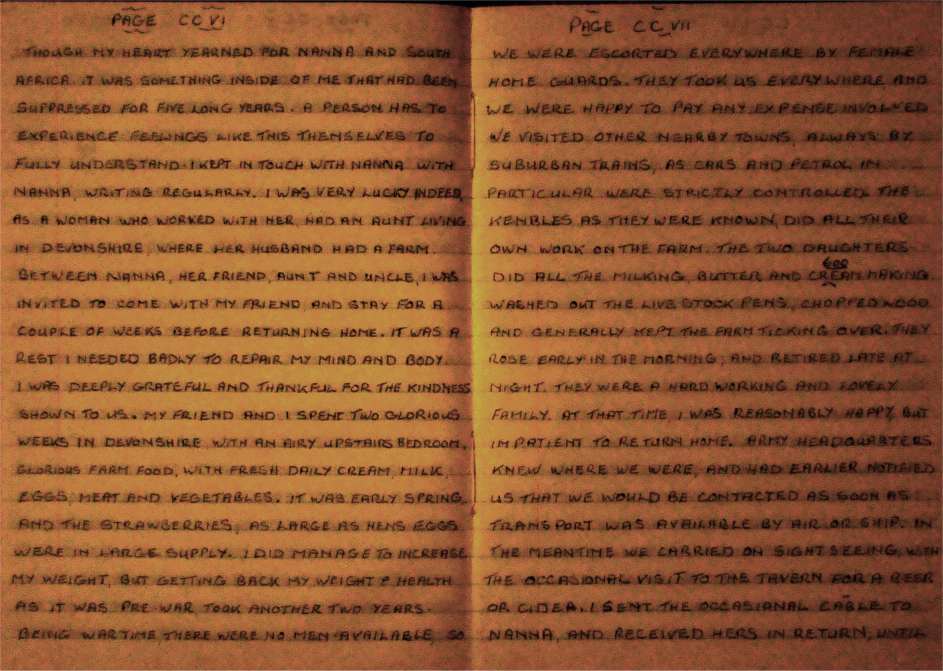 PAGE CCVI
THOUGH MY HEART YEARNED FOR NANNA AND SOUTH
AFRICA IT WAS SOMETHING INSIDE OF ME THAT HAD BEEN
SUPPRESSED FOR FIVE LONG YEARS. A PERSON HAS TO
EXPERIENCE FEELINGS LIKE THIS THEMSELVES TO
FULLY UNDERSTAND. I KEPT IN TOUCH WITH NANNA WITH
NANNA, WRITING REGULARLY. I WAS VERY LUCKY INDEED,
AS A WOMAN WHO WORKED WITH HER, HAD AN AUNT LIVING
IN DEVONSHIRE, WHERE HER HUSBAND HAD A FARM.
BETWEEN NANNA, HER FRIEND, AUNT AND UNCLE, I WAS
INVITED TO COME WITH MY FRIEND AND STAY FOR A
COUPLE OF WEEKS BEFORE RETURNING HOME. IT WAS A
REST I NEEDED BADLY TO REPAIR MY MIND AND BODY.
I WAS DEEPLY GRATEFUL AND THANKFUL FOR THE KINDNESS
SHOWN TO US. MY FRIEND AND I SPENT TWO GLORIOUS
WEEKS IN DEVONSHIRE WITH AN AIRY UPSTAIRS BEDROOM,
GLORIOUS FARM FOOD, WITH FRESH DAILY CREAM, MILK,
EGGS, MEAT AND VEGETABLES. IT WAS EARLY SPRING
AND THE STRAWBERRIES, AS LARGE AS HENS EGGS
WERE IN LARGE SUPPLY. I DID MANAGE TO INCREASE
MY WEIGHT, BUT GETTING BACK MY WEIGHT & HEALTH
AS IT WAS PRE-WAR TOOK ANOTHER TWO YEARS.
BEING WARTIME THERE WERE NO MEN AVAILABLE, SO
PAGE CCVII
WE WERE ESCORTED EVERYWHERE BY FEMALE
HOME GUARDS. THEY TOOK US EVERYWHERE AND
WE WERE HAPPY TO PAY ANY EXPENSE INVOLVED
WE VISITED OTHER NEARBY TOWNS, ALWAYS BY
SUBURBAN TRAINS, AS CARS AND PETROL IN
PARTICULAR WERE STRICTLY CONTROLLED. THE
KENBLES AS THEY WERE KNOWN, DID ALL THEIR
OWN WORK ON THE FARM. THE TWO DAUGHTERS
DID ALL THE MILKING, BUTTER AND CREAM MAKING.
WASHED OUT THE LIVESTOCK PENS, CHOPPED WOOD
AND GENERALLY KEPT THE FARM TICKING OVER. THEY
ROSE EARLY IN THE MORNING; AND RETIRED LATE AT
NIGHT. THEY WERE A HARD WORKING AND LOVELY
FAMILY. AT THAT TIME I WAS REASONABLY HAPPY BUT
IMPATIENT TO RETURN HOME. ARMY HEADQUARTERS
KNEW WHERE WE WERE, AND HAD EARLIER NOTIFIED
US THAT WE WOULD BE CONTACTED AS SOON AS
TRANSPORT WAS AVAILABLE BY AIR OR SHIP. IN
THE MEANTIME WE CARRIED ON SIGHTSEEING, WITH
THE OCCASIONAL VISIT TO THE TAVERN FOR A BEER
OR CIDEA. I SENT THE OCCASIANAL CABLE TO
NANNA, AND RECEIVED HERS IN RETURN, UNTIL